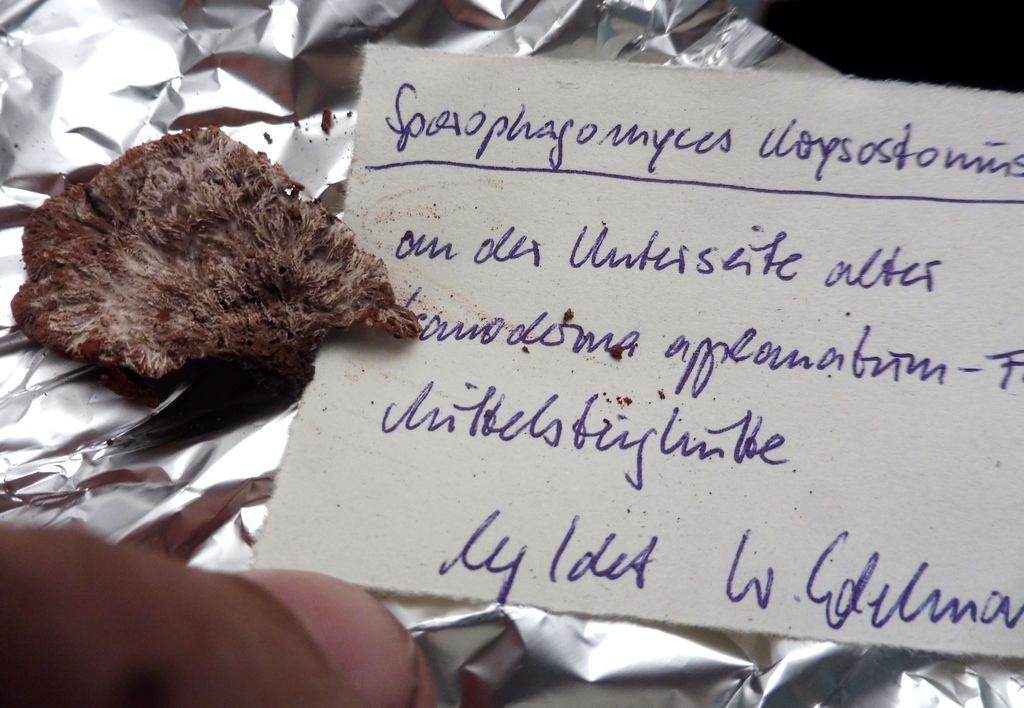 Sporophagomyces chrysostomus
an der Unterseite alter
Ganoderma applanatum-F
Mittelsteighütte
leg/det W. Edelman